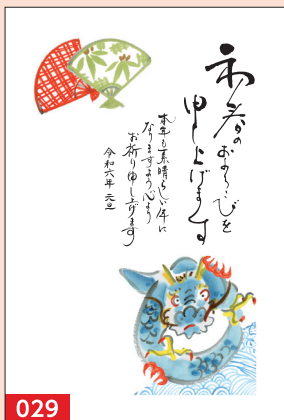 初春のおよろこびを
申し上げます
本年も素晴らしい年に
なりますよう心より
お祈り申し上げます
令和六年 元旦
029